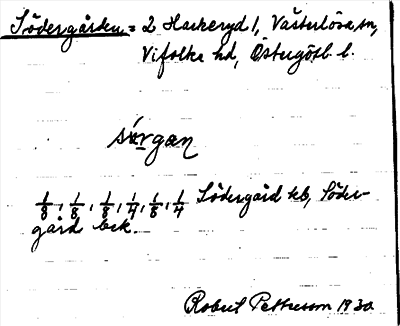 Södergården = 2 Hackeryd 1, Västerlösa sn,
Vifolka hd, Östergötl. l.
sö̀rgan
1/8, 1/8, 1/8, 1/4, 1/8, 1/4 Södergård kb, Söder-
gård bek.
Robert Pettersson 1930